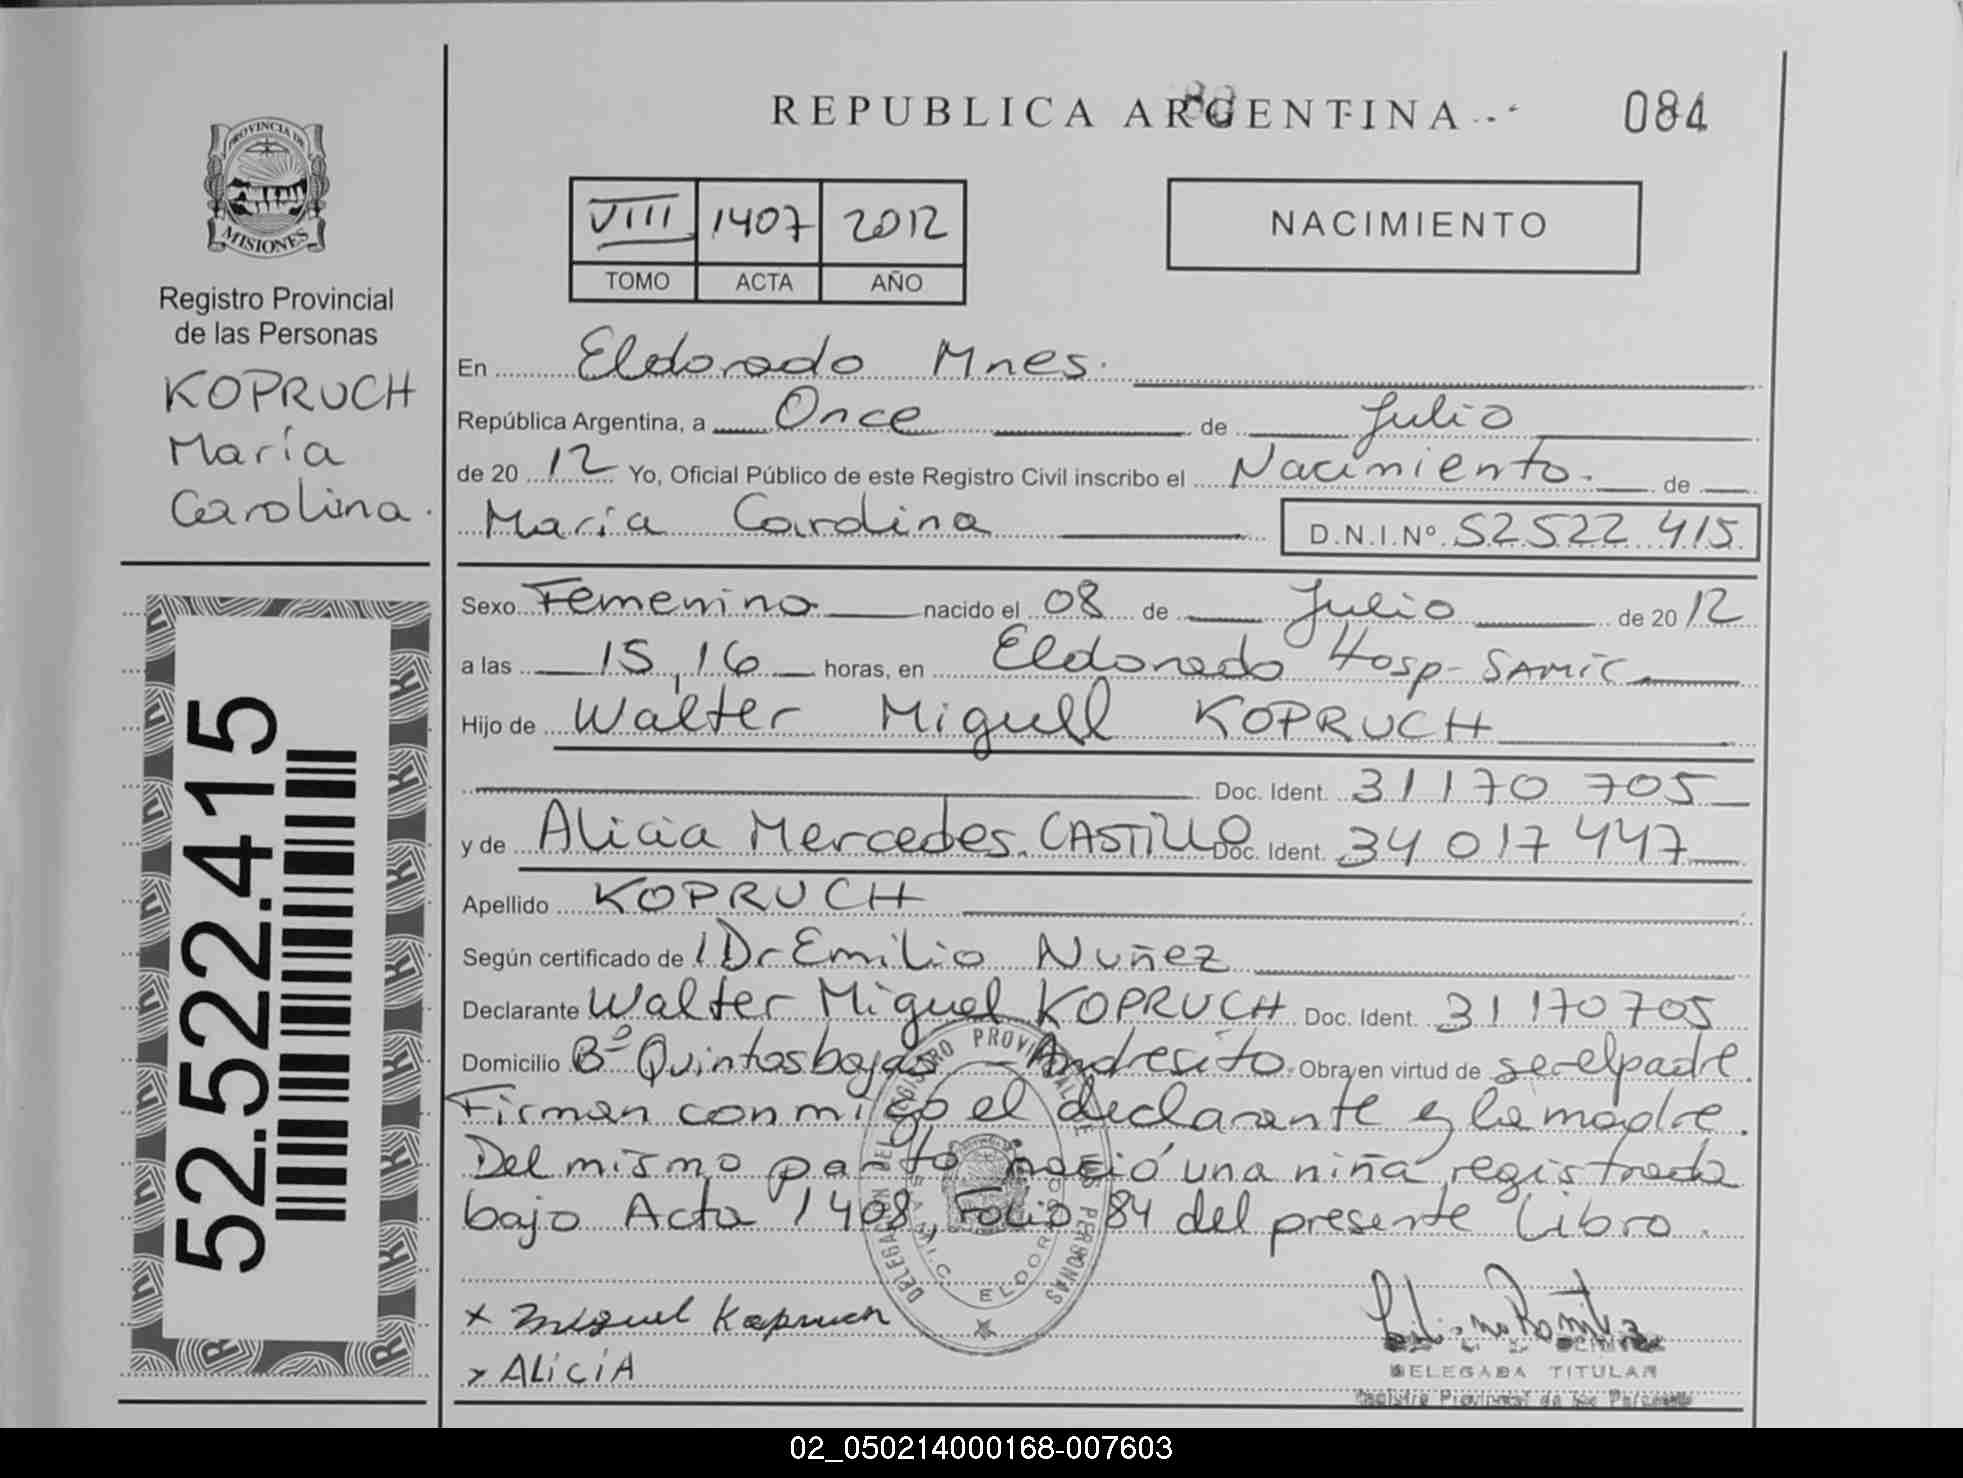 REPUBLICA ARGENTINA
084
PROVINCIA DE
MISIONES
Registro Provincial
de las Personas
KOPRUCH
María
Carolina.
VIII 1407 2012
TOMO ACTA AÑO
NACIMIENTO
En Eldorado Mnes.
República Argentina, a Once de Julio
de 20 12 Yo, Oficial Público de este Registro Civil inscribo el Nacimiento. de
María Carolina D.N.I.Nº. 52522 415
Sexo Femenino nacido el 08 de Julio de 20 12
a las 15,16 horas, en Eldorado Hosp-SAMIC
Hijo de Walter Miguel KOPRUCH
Doc. Ident. 31170 705
y de Alicia Mercedes CASTILLO Doc. Ident. 34 017 447
Apellido KOPRUCH
Según certificado de Dr Emilio Nuñez
Declarante Walter Miguel KOPRUCH Doc. Ident. 31170705
Domicilio Bº Quintas bajas Andresito Obra en virtud de ser el padre.
Firman conmigo el declarante y la madre.
Del mismo parto nació una niña registrada
bajo Acta 1408, Folio 84 del presente Libro.
x Miguel Kopruch
x ALiCiA
DELEGADA TITULAR
Registro Provincial de las Personas
DELEGACION DEL REGISTRO PROVINCIAL DE LAS PERSONAS
ELDORADO
52.522.415
02_050214000168-007603